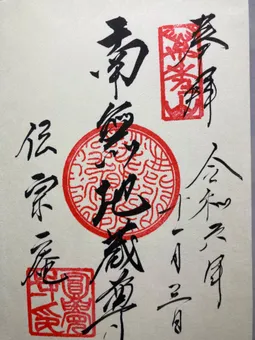 奉拝
令和六年
十一月三日
南無地蔵尊
伝宗庵